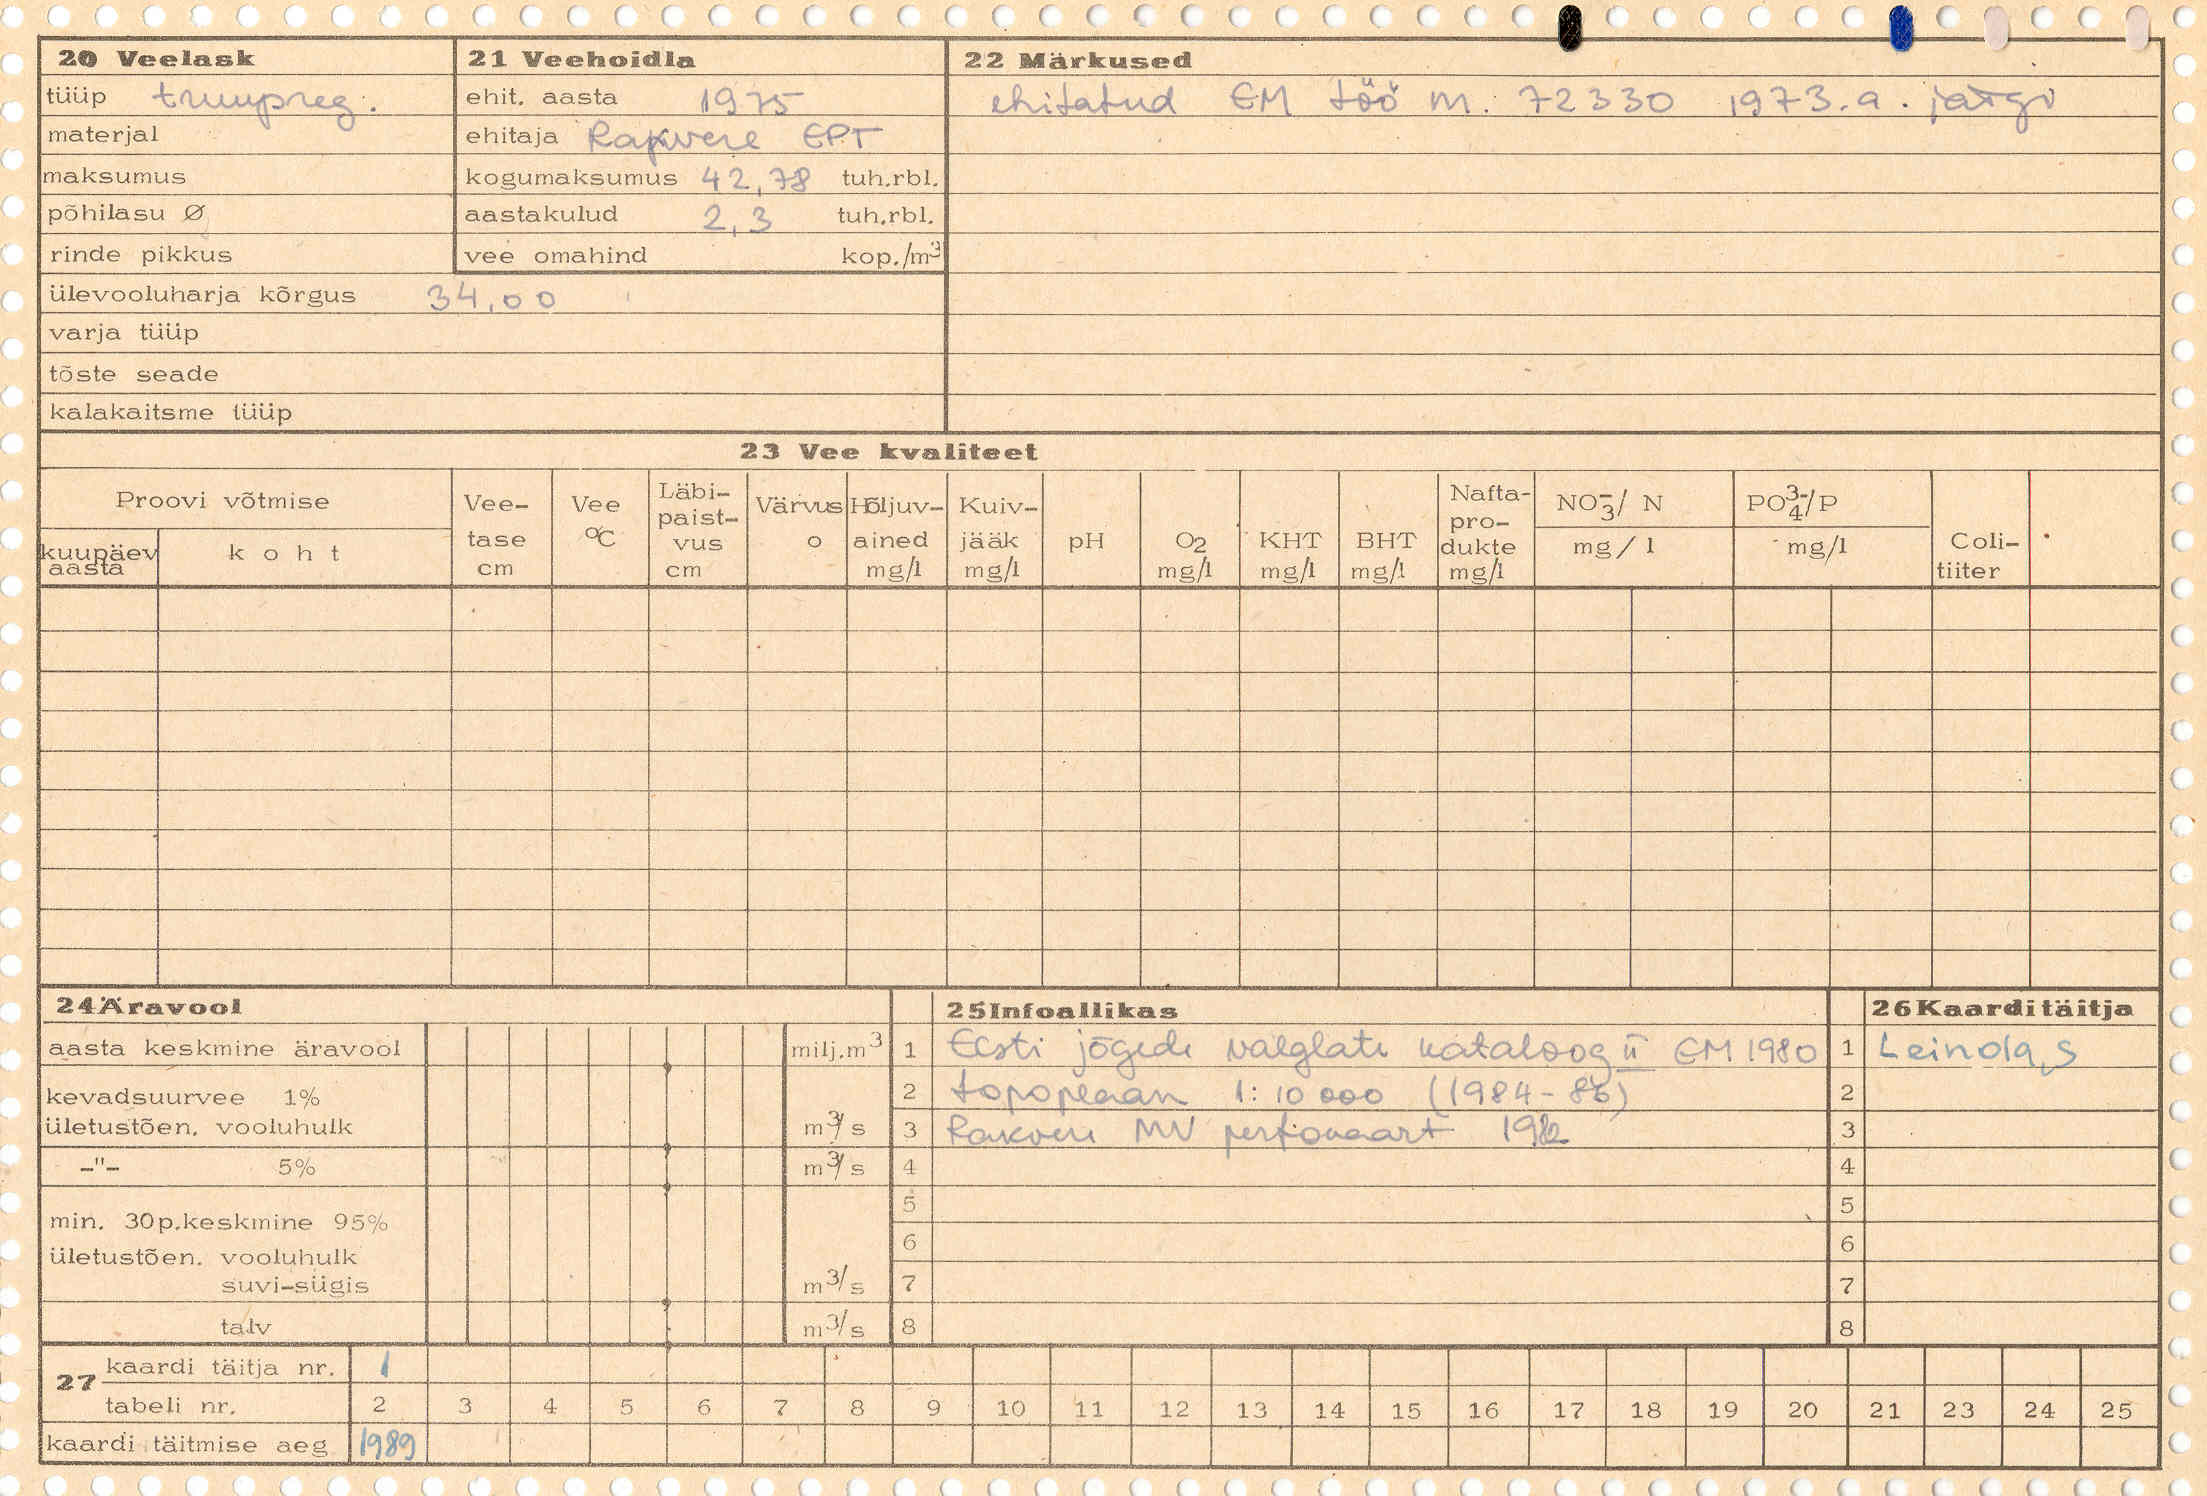 20 Veelask
tüüp truupreg.
materjal
maksumus
põhilasu Ø
rinde pikkus
ülevooluharja kõrgus 34,00
varja tüüp
tõste seade
kalakaitsme tüüp
21 Veehoidla
ehit. aasta 1975
ehitaja Rakvere EPT
kogumaksumus 42,78 tuh.rbl.
aastakulud 2,3 tuh.rbl.
vee omahind kop./m³
22 Märkused
ehitatud EM töö nr. 72330 1973.a. järgi
23 Vee kvaliteet
Proovi võtmise
kuupäev
aasta
koht
Vee-
tase
cm
Vee
°C
Läbi-
paist-
vus
cm
Värvus
o
Hõljuv-
ained
mg/l
Kuiv-
jääk
mg/l
pH
O₂
mg/l
KHT
mg/l
BHT
mg/l
Nafta-
pro-
dukte
mg/l
NO₃⁻/ N
mg/l
PO₄³⁻/P
mg/l
Coli-
tiiter
24 Äravool
aasta keskmine äravool milj.m³
kevadsuurvee 1%
ületustõen. vooluhulk m³/s
-"- 5% m³/s
min. 30p.keskmine 95%
ületustõen. vooluhulk
suvi-sügis m³/s
talv m³/s
25 Infoallikas
1 Eesti jõgede valglate kataloog II EM 1980
2 topoplaan 1:10 000 (1984-86)
3 Rakvere MV 1982
4
5
6
7
8
26 Kaarditäitja
1 Leinola, S
2
3
4
5
6
7
8
27
kaardi täitja nr. 1
tabeli nr. 2 3 4 5 6 7 8 9 10 11 12 13 14 15 16 17 18 19 20 21 23 24 25
kaardi täitmise aeg 1989